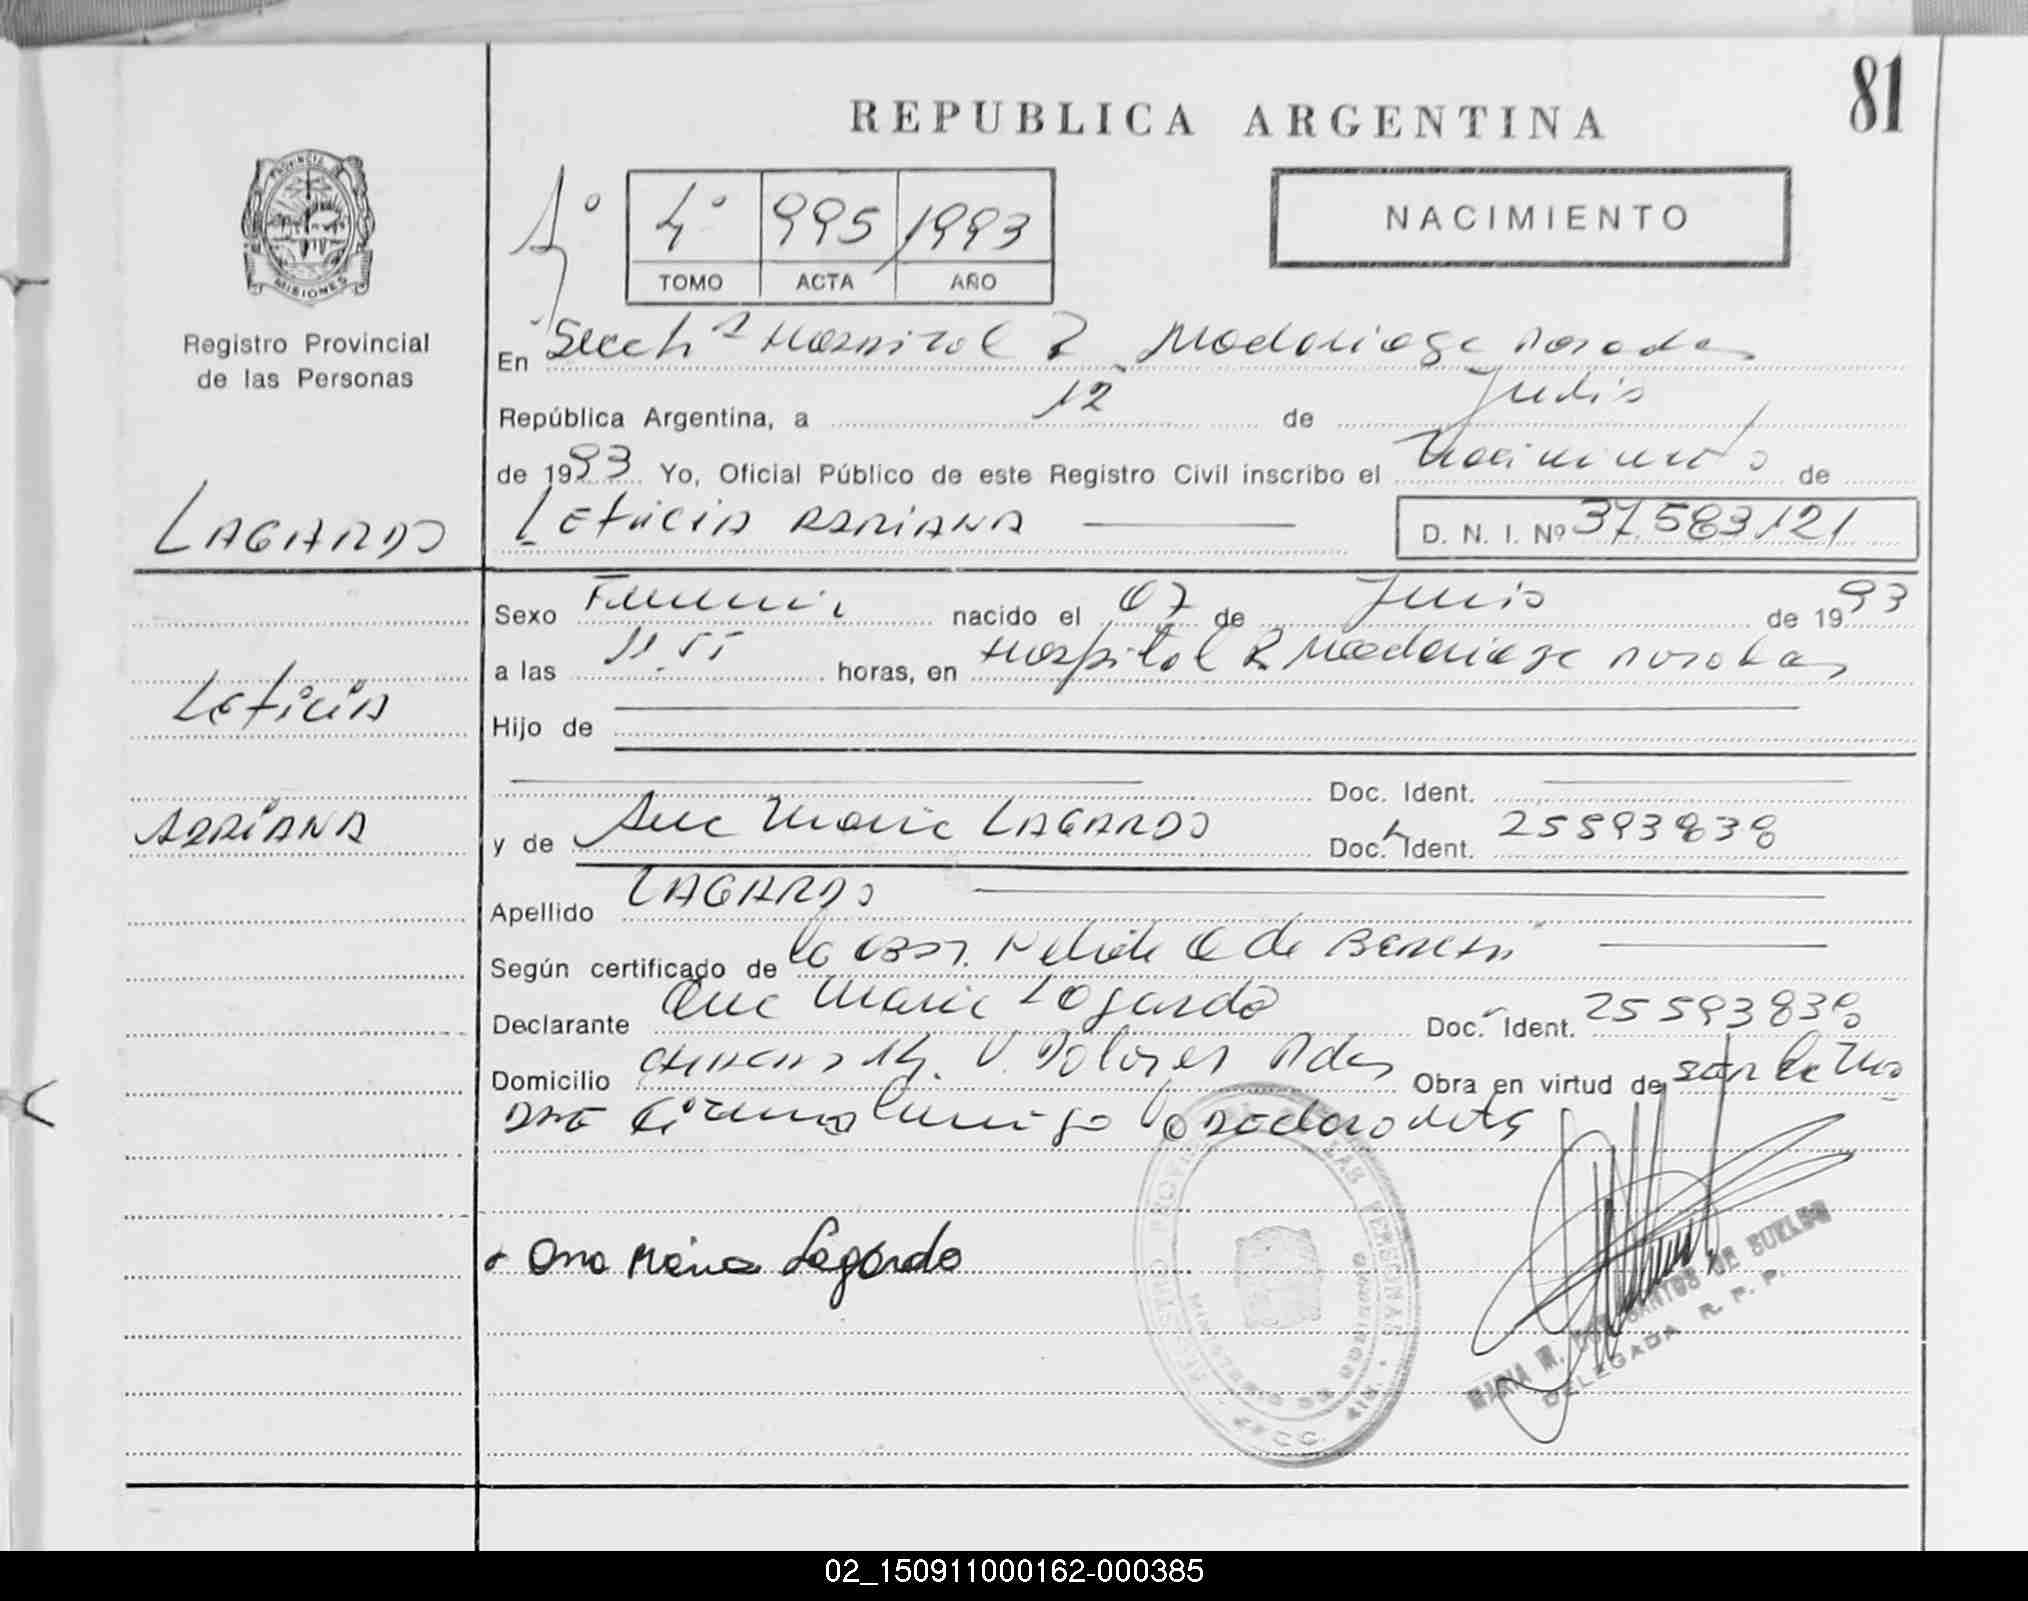 81
REPUBLICA ARGENTINA
PROVINCIA
MISIONES
1º
4º 995 1993
TOMO ACTA AÑO
NACIMIENTO
Registro Provincial
de las Personas
En Secc 1ª Hospital R. Madariaga Posadas
República Argentina, a 12 de Julio
de 1993 Yo, Oficial Público de este Registro Civil inscribo el Nacimiento de
LAGARDO
LETICIA ADRIANA D. N. I. Nº 37583121
Sexo Femenino nacido el 07 de Junio de 1993
a las 11.55 horas, en Hospital R. Madariaga Posadas
LETICIA
Hijo de
Doc. Ident.
ADRIANA
y de Ana Maria LAGARDO Doc. Ident. 25593838
Apellido LAGARDO
Según certificado de la Obst. Nelida de
Declarante Ana Maria Lagardo Doc. Ident. 25593838
Domicilio 14. V. Dolores Pdas Obra en virtud de ser la Ma
dre Firma conmigo la declarante
Ana Maria Lagardo
REGISTRO PROVINCIAL DE LAS PERSONAS
MINISTERIO DE GOBIERNO
DOS SANTOS DE
DELEGADA R. P. P.
02_150911000162-000385